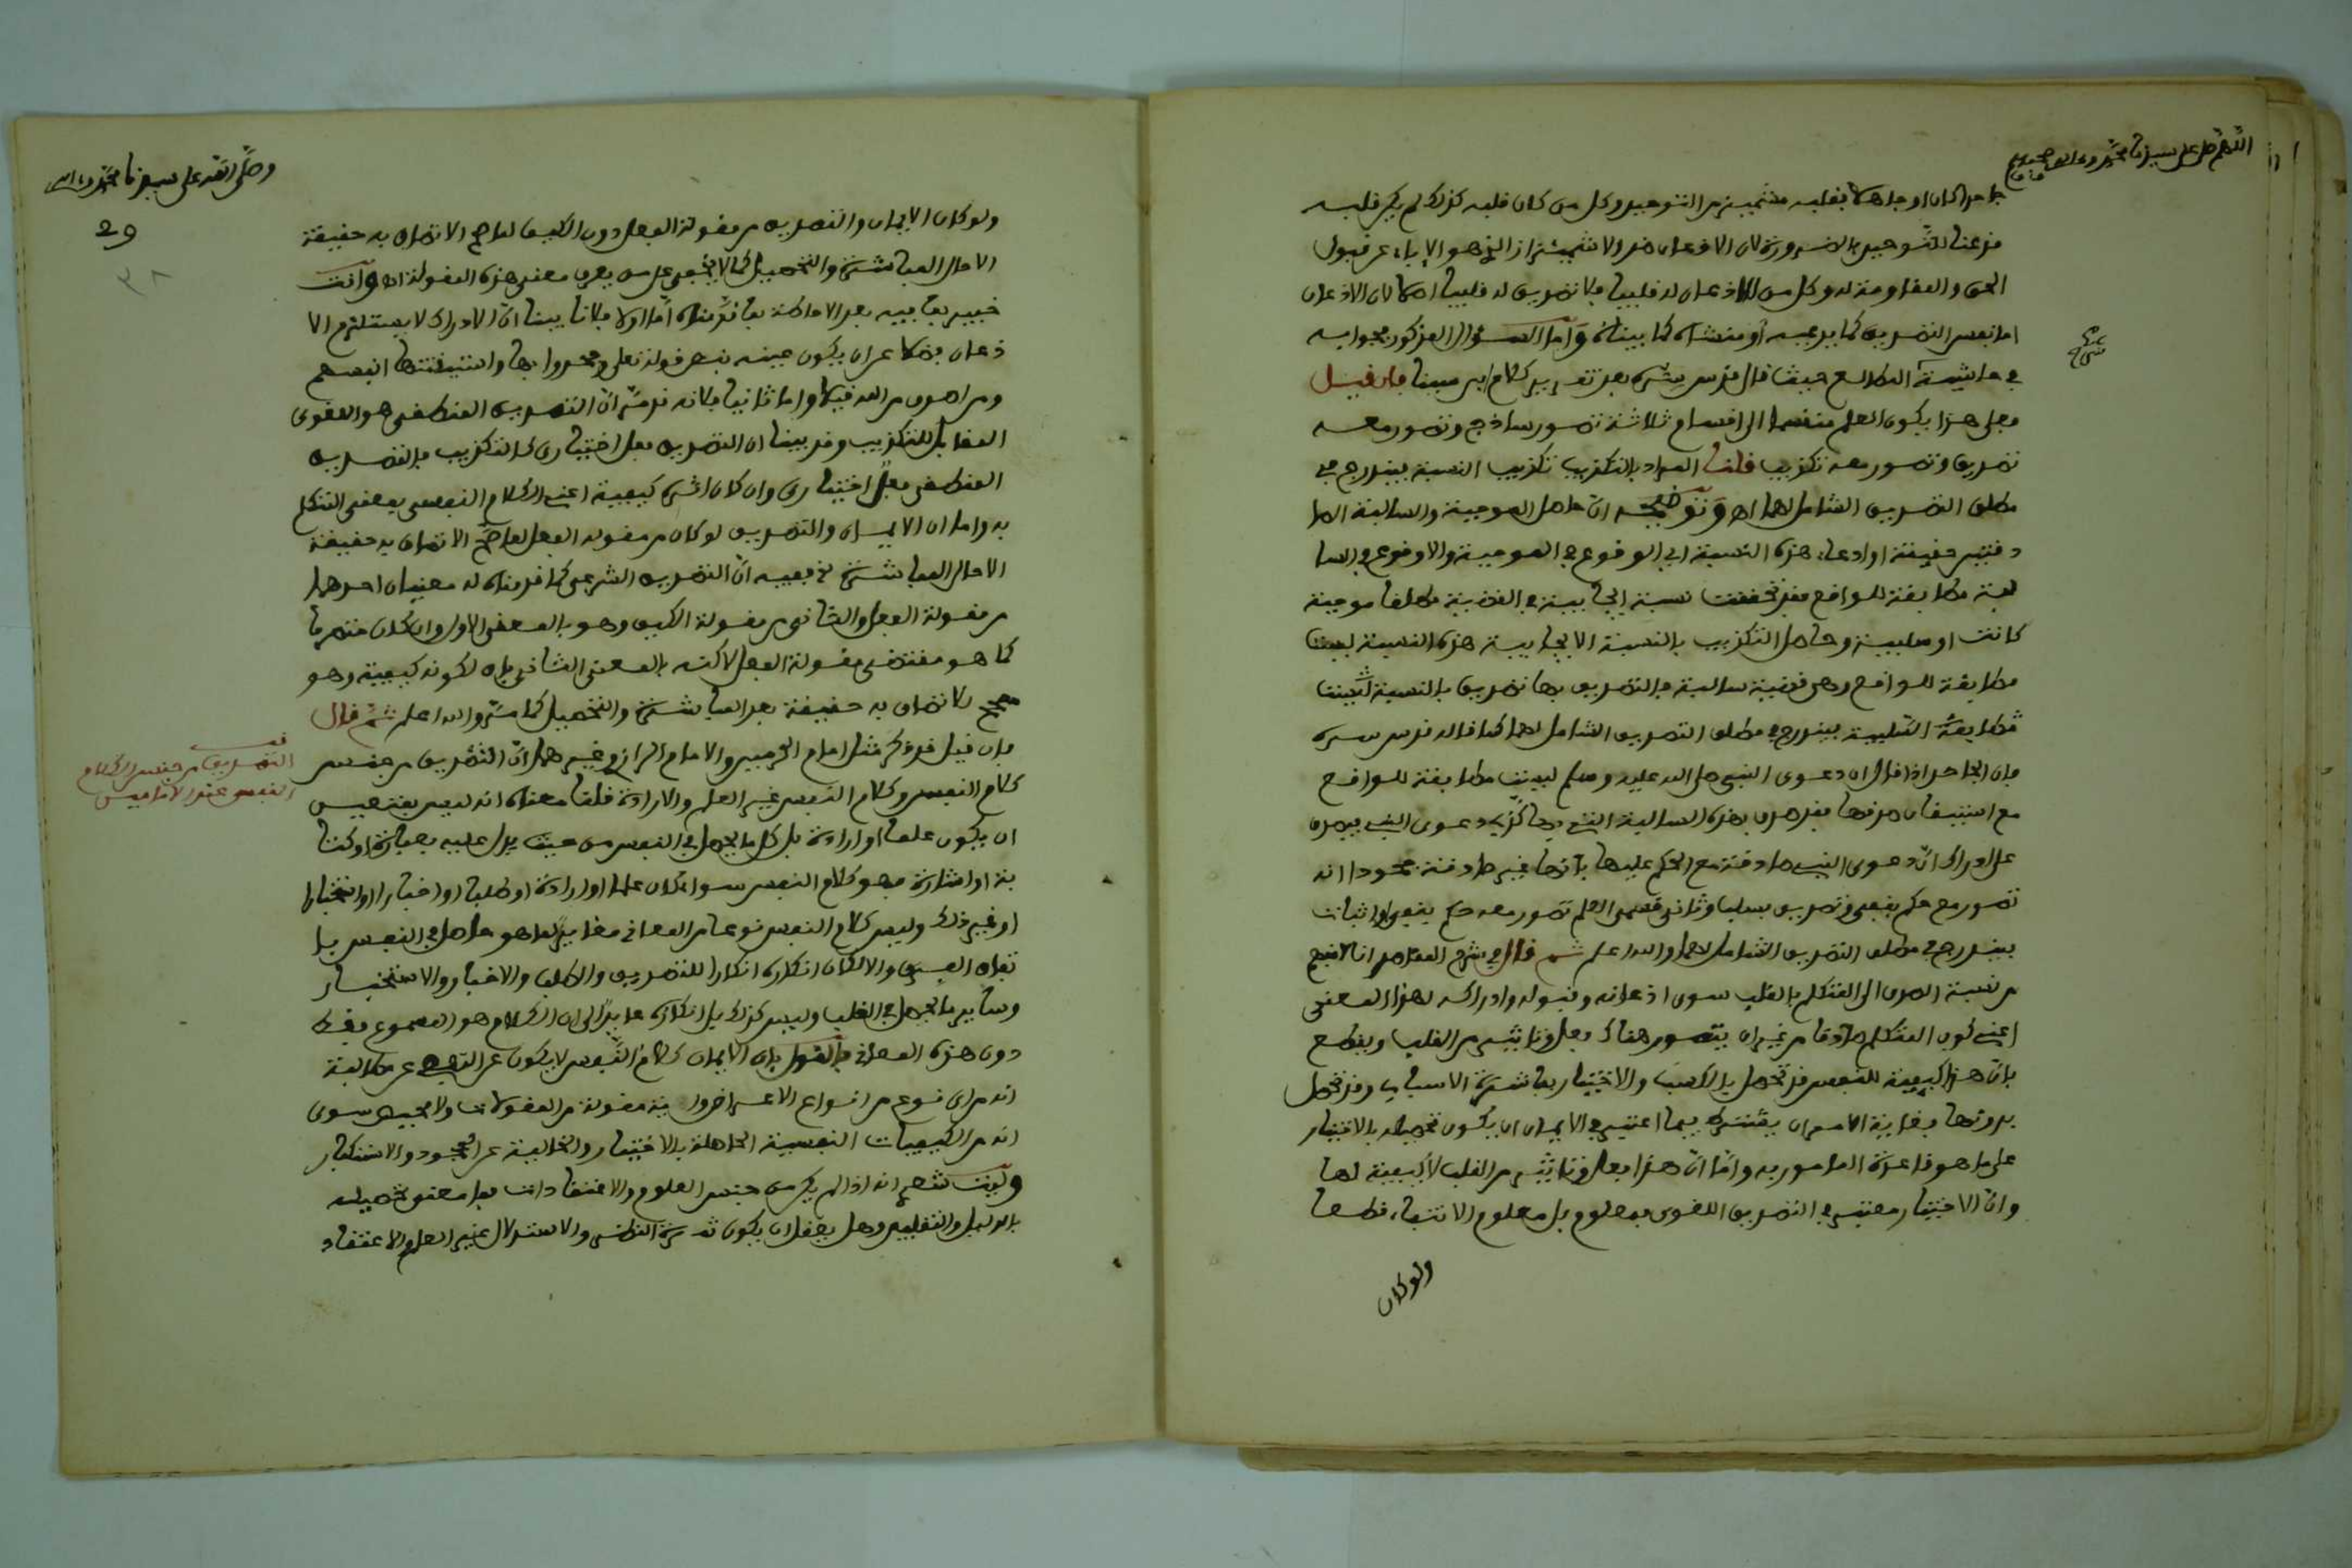 اللهم صل على سيدنا محمد وعلى اله
جاحدا كان او جاهلا بقلبه مشمئز من التوحيد وكل من كان قلبه كذلك لم يكن قلبه
مذعنا للتوحيد بالضرورة لان الاذعان ضد الاشمئزاز الذي هو الاباء عن قبول
الحق والمقاومة له وكل من لا اذعان له قلبيا فلا تصديق له قلبيا اصلا لان الاذعان
اما نفس التصديق كما يدعيه او منشاه كما بيناه واما السؤال المذكور فجوابه
في حاشية المطالع حيث قال قدس سره بعد تقرير كلام ابن سينا فان قيل
فعلى هذا يكون العلم منقسما الى اقسام ثلاثة تصور ساذج وتصور معه
تصديق وتصور معه تكذيب قلنا المراد بالتكذيب تكذيب النسبة فيندرج في
مطلق التصديق الشامل لهما اه وتوضيحه ان حاصل الموجبة والسالبة الصا
دقتين حقيقة او ادعاء هذه النسبة اي الوقوع في الموجبة والاوقوع في السا
لبة مطابقة للواقع فقد تحققت نسبة ايجابية في القضية مطلقا موجبة
كانت او سلبية وحاصل التكذيب بالنسبة الايجابية هذه النسبة ليست
مطابقة للواقع وهي قضية سالبة فالتصديق بها تصديق بالنسبة ليست
مطابقة السلبية فيندرج في مطلق التصديق الشامل لهما كما قاله قدس سره
فان الجاحد اذا قال ان دعوى النبي صلى الله عليه وسلم ليست مطابقة للواقع
مع استيقان صدقها فقد صدق بهذه السالبة التي بها كذب دعوى النبي فيصدق
على ادراك ان دعوى النبي صادقة مع الحكم عليها بانها غير صادقة جحودا انه
تصور مع حكم بنفي وتصديق بسلب وثاني قسمي العلم تصور معه حكم بنفي او اثبات
فيندرج في مطلق التصديق الشامل لهما والله اعلم ثم قال في شرح المقاصد انا لا نفهم
من نسبة الصدق الى المتكلم بالقلب سوى اذعانه وقبوله وادراكه لهذا المعنى
اعني كون المتكلم صادقا من غير ان يتصور هناك فعل وتاثير من القلب ويقطع
بان هذا كيفية للنفس قد تحصل بالكسب والاختيار بمباشرة الاسباب وقد تحصل
بدونها فغاية الامر ان يشترط فيما اعتبر في الايمان ان يكون تحصيله بالاختيار
على ما هو قاعدة المامور به واما ان هذا فعل وتاثير من القلب لا كيفية لها
وان الاختيار معتبر في التصديق اللغوي فمعلوم بل معلوم الانتفاء قطعا
ولو كان
وصلى الله على سيدنا محمد واله
29
٣٨
ولو كان الايمان والتصديق من مقولة الفعل دون الكيف لما صح الاتصاف به حقيقة
الا حال المباشرة والتحصيل كما لا يخفى على من يعرف معنى هذه المقولة اه وانت
خبير بما فيه بعد الاحاطة بما قدمناه اما اولا فلانا بينا ان الادراك لا يستلزم الا
ذعان فضلا عن ان يكون عينه بنص قوله تعلى وجحدوا بها واستيقنتها انفسهم
ومن اصدق من الله قيلا واما ثانيا فلانه قد مر ان التصديق المنطقي هو اللغوي
المقابل للتكذيب وقد بينا ان التصديق فعل اختياري كالتكذيب فالتصديق
المنطقي فعل اختياري وان كان اثره كيفية اعني الكلام النفسي بمعنى المتكلم
به واما ان الايمان والتصديق لو كان من مقولة الفعل لما صح الاتصاف به حقيقة
الا حال المباشرة ففيه ان التصديق الشرعي كما قدمناه له معنيان احدهما
من مقولة الفعل والثاني من مقولة الكيف وهو بالمعنى الاول وان كان منصرما
كما هو مقتضى مقولة الفعل لاكنه بالمعنى الثاني باق لكونه كيفية وهو
مصحح الاتصاف به حقيقة بعد المباشرة والتحصيل كما مر والله اعلم ثم قال
فان قيل قد ذكر مثل امام الحرمين والامام الرازي وغيرهما ان التصديق من جنس
كلام النفس وكلام النفس غير العلم والارادة قلنا معناه انه ليس بمتعين
ان يكون علما او ارادة بل كل ما يحصل في النفس من حيث يدل عليه بعبارة او كتا
بة او اشارة فهو كلام النفس سواء كان علما او ارادة او طلبا او اخبارا او استخبارا
او غير ذلك وليس كلام النفس نوعا من المعاني مغايرا لما هو حاصل في النفس با
تفاق الفرق والا لكان انكاره انكارا للتصديق والطلب والاخبار والاستخبار
وساير ما يحصل في القلب وليس كذلك بل انكاره عايد الى ان الكلام هو المسموع فقط
دون هذه المعاني فالقول بان الايمان كلام النفس لا يكون عن التقصي عن مطالبة
انه من اي نوع من انواع الاعراض واية مقولة من المقولات ولا محيص سوى
انه من الكيفيات النفسية الحاصلة بالاختيار والخالية عن الجحود والاستكبار
وليت شعري انه اذا لم يكن من جنس العلوم والاعتقادات فما معنى تحصيله
بالدليل والتقليد وهل يعقل ان يكون ثمرة النظر والاستدلال غير العلم والاعتقاد
قف
التصديق من جنس الكلام
النفسي عند الامامين